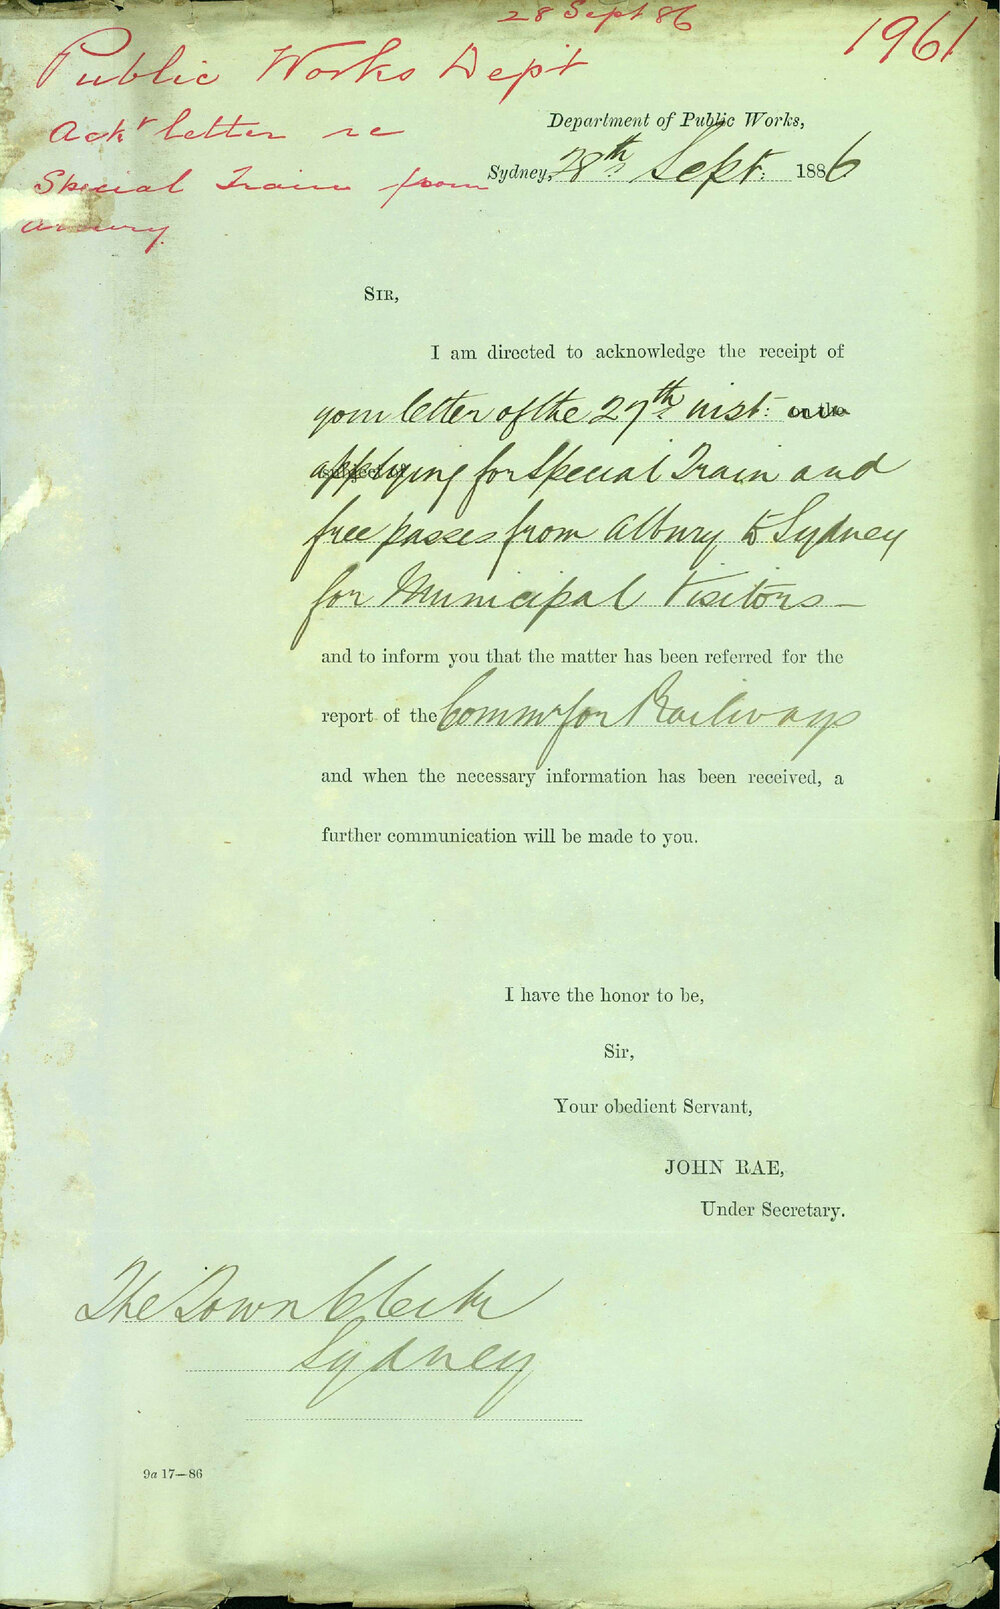 28 Sept 86
1961
Public Works Dept
Ackr letter re
Special Train from
Albury
Department of Public Works,
Sydney, 28th Sept. 1886
SIR,
I am directed to acknowledge the receipt of
your letter of the 27th inst: on the
subject of applying for Special Train and
free passes from Albury to Sydney
for Municipal Visitors —
and to inform you that the matter has been referred for the
report of the Commr for Railways
and when the necessary information has been received, a
further communication will be made to you.
I have the honor to be,
Sir,
Your obedient Servant,
JOHN RAE,
Under Secretary.
The Town Clerk
Sydney
9a 17—86